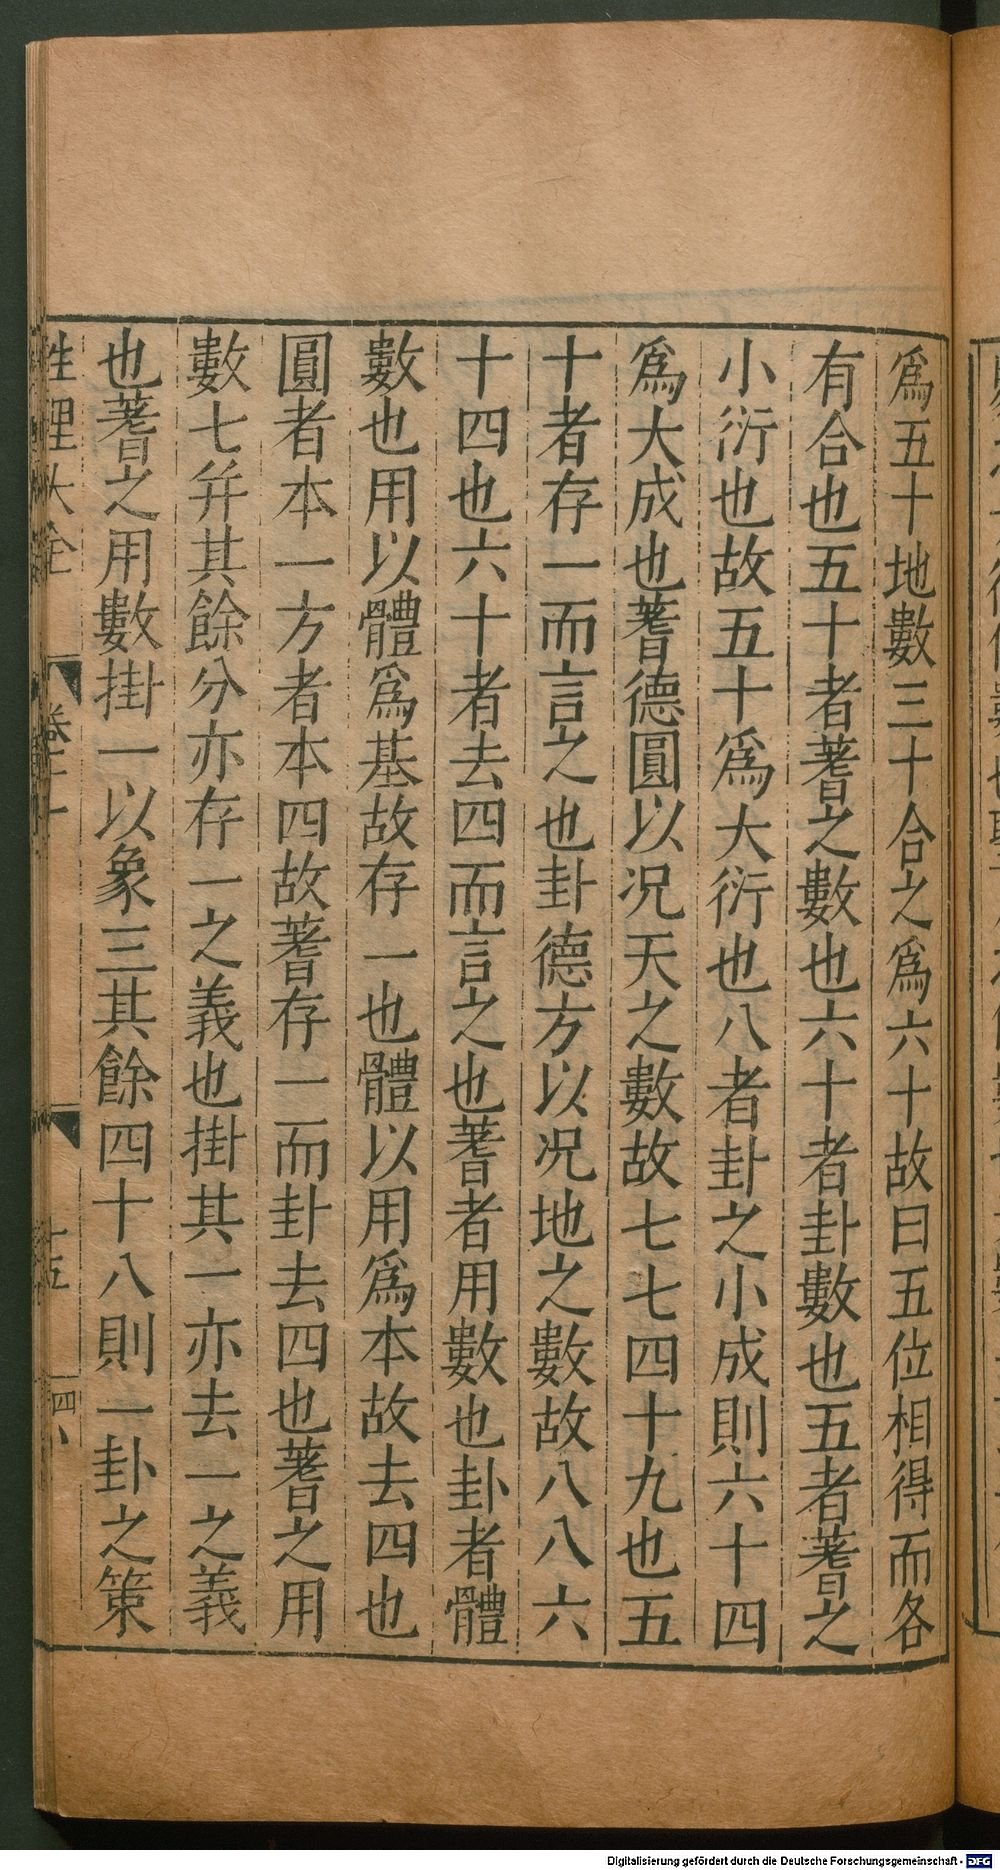 爲五十地數三十合之爲六十故曰五位相得而各
有合也五十者蓍之數也六十者卦數也五者蓍之
小衍也故五十爲大衍也八者卦之小成則六十四
爲大成也蓍德圓以况天之數故七七四十九也五
十者存一而言之也卦德方以况地之數故八八六
十四也六十者去四而言之也蓍者用數也卦者體
數也用以體爲基故存一也體以用爲本故去四也
圓者本一方者本四故蓍存一而卦去四也蓍之用
數七幷其餘分亦存一之義也掛其一亦去一之義
也蓍之用數掛一以象三其餘四十八則一卦之策
性理大全
Digitalisierung gefördert durch die Deutsche Forschungsgemeinschaft - DFG